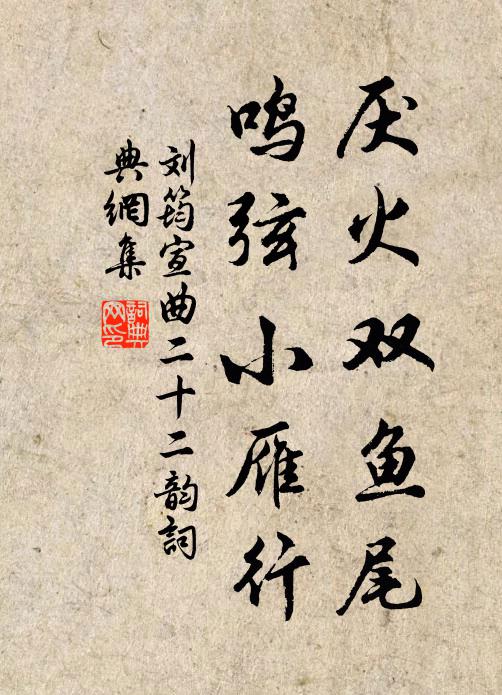 厌火双鱼尾
鸣弦小雁行
刘筠宣曲二十二韵詞
典網集
詞典
网印